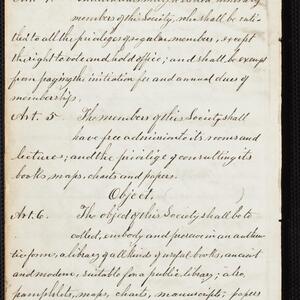 members of this Society, who shall be enti-
tled to all the privileges of regular members, except
the right to vote and hold office; and shall be exempt
from paying the initiation fee and annual dues of
membership.
Art. 5 The members of this Society shall
have free admission to its rooms and
lectures; and the privilege of consulting its
books, maps, charts and papers.
Object.
Art. 6. The object of this Society shall be to
collect, embody and preserve in an authen-
tic form, a library of all kinds of useful books, ancient
and modern, suitable for a public library; also,
pamphlets, maps, charts, manuscripts; papers